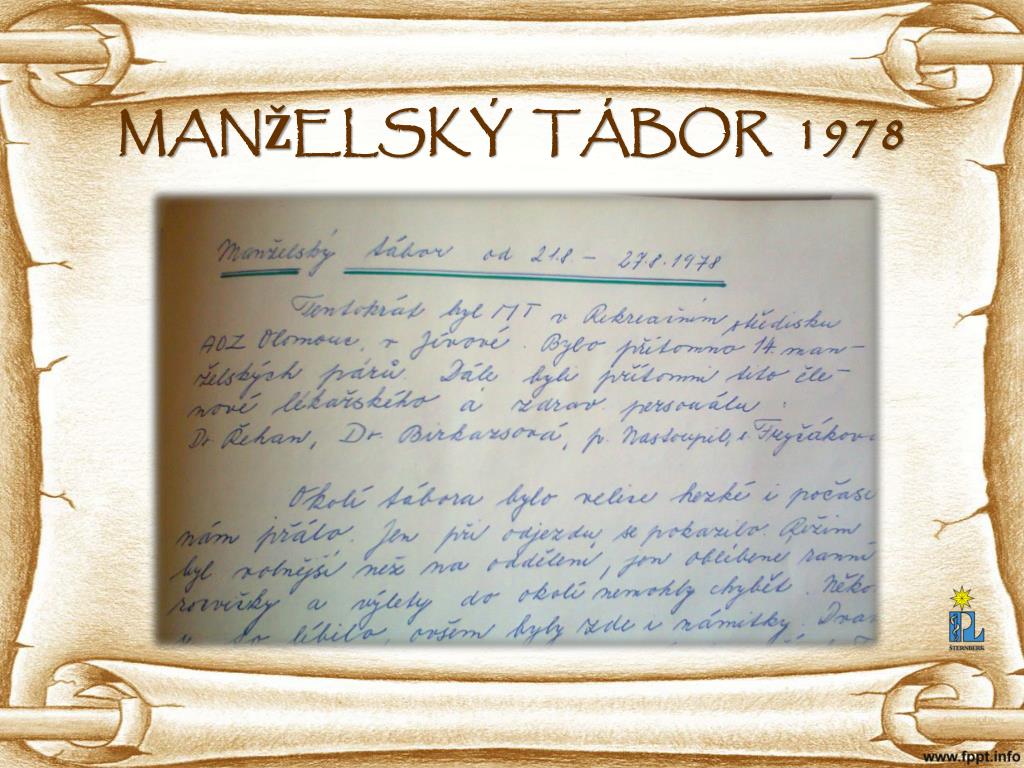 MANŽELSKÝ TÁBOR 1978
Manželský tábor od 21.8. – 27.8.1978
Tentokrát byl MT v Rekreačním středisku
AOZ Olomouc, v Jívové. Bylo přítomno 14 man-
želských párů. Dále byli přítomni tito čle-
nové lékařského a zdrav. personálu:
Dr. Řehan, Dr. Birkazsová, p. Nastoupil, s. Tryčákov
Okolí tábora bylo velice hezké i počasí
nám přálo. Jen při odjezdu se pokazilo. Režim
byl volnější než na oddělení, jen oblíbené ranní
rozcvičky a výlety do okolí nemohly chybět. Něko
se líbilo, ovšem byly zde i námitky. Dva
ŠTERNBERK
www.fppt.info